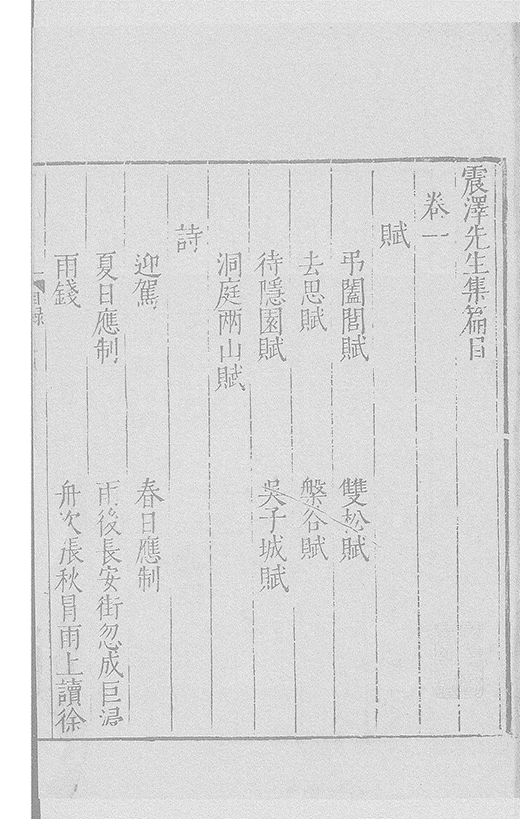 震澤先生集篇目
卷一
賦
弔闔閭賦 雙松賦
去思賦 槃谷賦
待隱園賦 吳子城賦
洞庭兩山賦
詩
迎駕 春日應制
夏日應制 雨後長安街忽成巨浸
雨錢 舟次張秋冒雨上讀徐
目錄